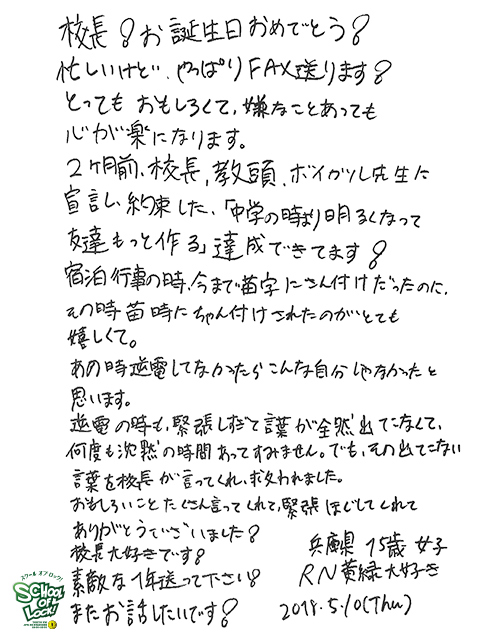 校長！お誕生日おめでとう！
忙しいけど、やっぱりFAX送ります！
とっても おもしろくて、嫌なことあっても
心が楽になります。
2ヶ月前、校長、教頭、ボイガルし先生に
宣言し、約束した、「中学の時より明るくなって
友達もっと作る」達成できてます！
宿泊行事の時、今まで苗字にさん付けだったのに、
その時苗時にちゃん付けされたのがとても
嬉しくて。
あの時逆電してなかったらこんな自分じゃなかったと
思います。
逆電の時も、緊張しすぎて言葉が全然出てこなくて、
何度も沈黙の時間あってすみません。でも、その出てこない
言葉を校長が言ってくれ、救われました。
おもしろいことたくさん言ってくれて、緊張ほぐしてくれて
ありがとうございました！
校長大好きです！
素敵な1年送って下さい！
またお話したいです！
兵庫県 15歳 女子
RN 黄緑大好き
2018.5.10(Thu)
スクール オブ ロック!
SCHOOL OF LOCK!